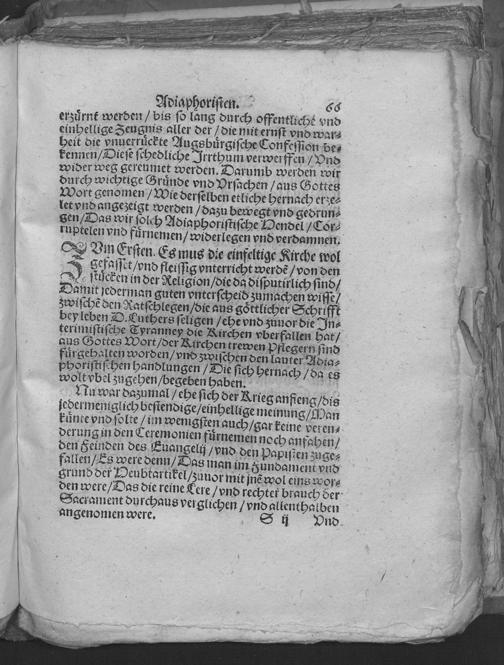 Adiaphoristen. 66
erzürnt werden / bis so lang durch offentliche vnd
einhellige Zeugnis aller der / die mit ernst vnd war-
heit die vnuerrückte Augsbürgische Confession be-
kennen / Diese schedliche Irrthum verworffen / Vnd
wider weg gereumet werden. Darumb werden wir
durch wichtige Gründe vnd Vrsachen / aus Gottes
Wort genomen / Wie derselben etliche hernach erze-
let vnd angezeigt werden / dazu bewegt vnd gedrun-
gen / Das wir solch Adiaphoristische Hendel / Cor-
ruptelen vnd fürnemen / widerlegen vnd verdamnen.
ZVm Ersten. Es mus die einfeltige Kirche wol
gefasset / vnd fleissig vnterricht werdē / von den
stücken in der Religion / die da disputirlich sind /
Damit jederman guten vnterscheid zumachen wisse /
zwischē den Ratschlegen / die aus göttlicher Schrifft
bey leben D. Luthers seligen / ehe vnd zuuor die In-
terimistische Tyranney die Kirchen vberfallen hat /
aus Gottes Wort / der Kirchen trewen Pflegern sind
fürgehalten worden / vnd zwischen den lauter Adia-
phoristischen handlungen / Die sich hernach / da es
wolt vbel zugehen / begeben haben.
Nu war dazumal / ehe sich der Krieg anfieng / dis
jedermeniglich bestendige / einhellige meinung / Man
künte vnd solte / im wenigsten auch / gar keine veren-
derung in den Ceremonien fürnemen noch anfahen /
den Feinden des Euangelij / vnd den Papisten zuge-
fallen / Es were denn / Das man im Fundament vnd
grund der Heubtartikel / zuuor mit jnē wol eins wor-
den were / Das die reine Lere / vnd rechter brauch der
Sacrament durchaus verglichen / vnd allenthalben
angenomen were.
S ij Vnd